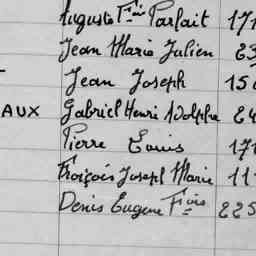 Auguste Fçois Parfait 171
Jean Marie Julien 23
Jean Joseph 150
AUX Gabriel Henri Adolphe 24
Pierre Louis 171
François Joseph Marie 111
Denis Eugene Fçois 225